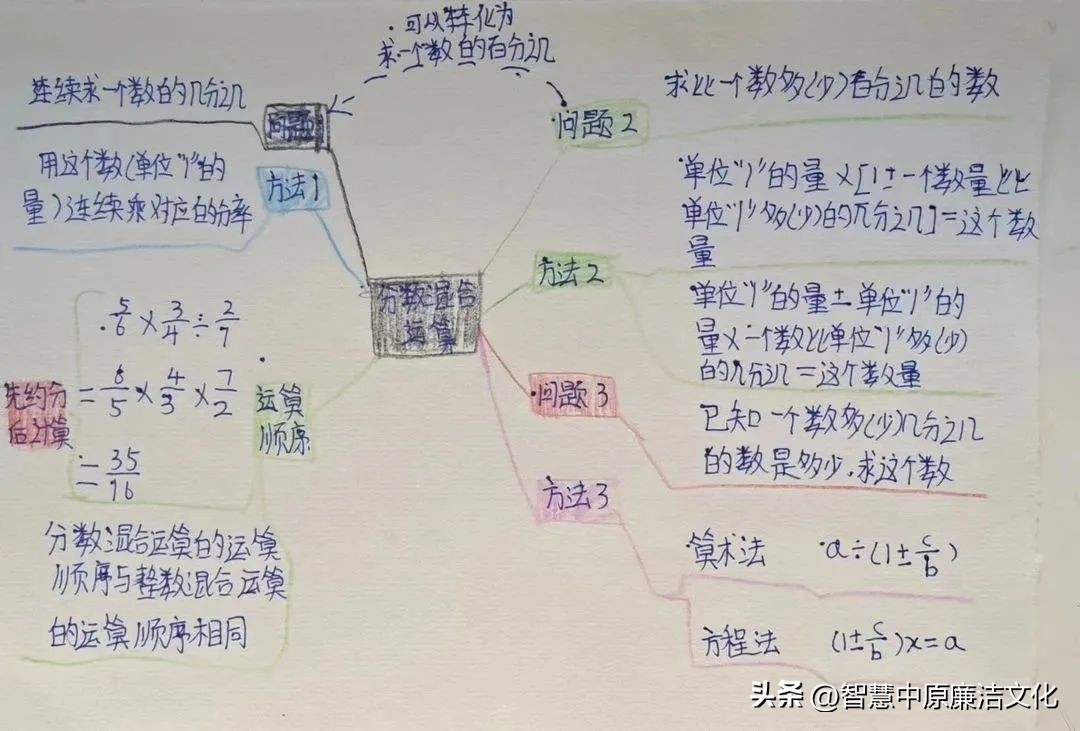 ·可以转化为
求一个数的百分之几
连续求一个数的几分之几
问题1
用这个数(单位"1"的
量)连续乘对应的分率
方法1
问题2
求比一个数多(少)百分之几的数
单位"1"的量×[1±一个数量比
单位"1"多(少)的几分之几]=这个数
量
方法2
单位"1"的量±单位"1"的
量×一个数比单位"1"多(少)
的几分之几=这个数量
分数混合
运算
·5/6×3/4÷2/7
=6/5×4/3×7/2
=35/16
先约分
后计算
运算
顺序
分数混合运算的运算
顺序与整数混合运算
的运算顺序相同
问题3
已知一个数多(少)几分之几
的数是多少,求这个数
方法3
·算术法 ·a÷(1±c/b)
方程法 (1±c/b)x=a
头条 @智慧中原廉洁文化